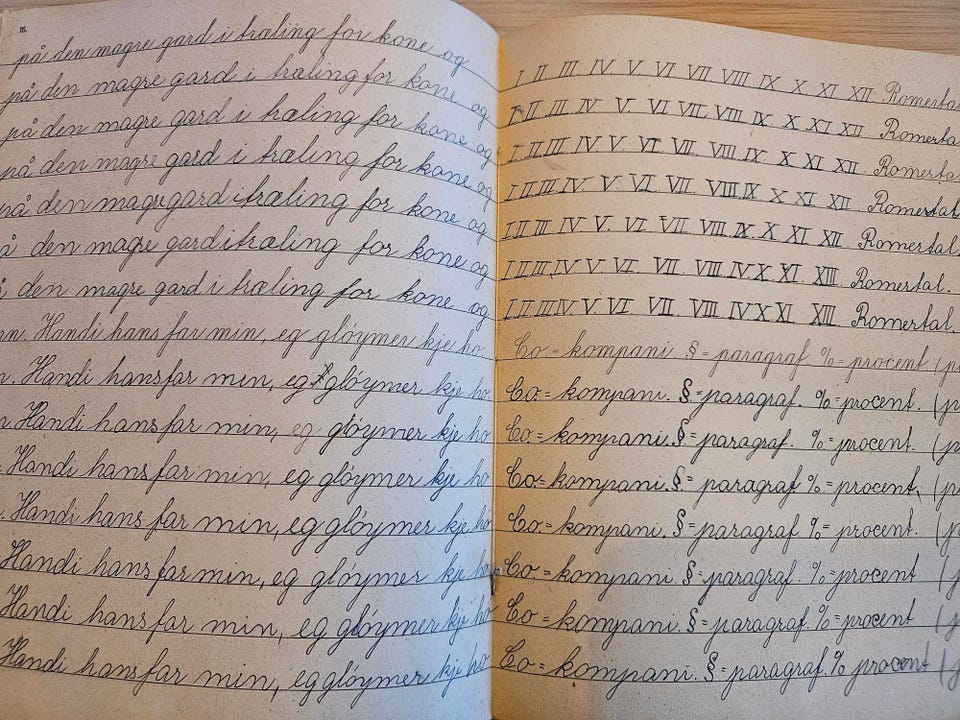 16.
på den magre gard i træling for kone og
på den magre gard i træling for kone og
på den magre gard i træling for kone og
på den magre gard i træling for kone og
på den magre gard i træling for kone og
å den magre gard i træling for kone og
å den magre gard i træling for kone og
nn. Handi hans far min, eg glóymer kje ho.
n. Handi hans far min, eg glóymer kje ho
n. Handi hans far min, eg glóymer kje ho
. Handi hans far min, eg glóymer kje ho
. Handi hans far min, eg glóymer kje ho
Handi hans far min, eg glóymer kje ho
Handi hans far min, eg glóymer kje ho
Handi hans far min, eg glóymer kje ho
I. II. III. IV. V. VI. VII. VIII. IX. X. XI. XII. Romertal
I. II. III. IV. V. VI. VII. VIII. IX. X. XI. XII. Romerta
I. II. III. IV. V. VI. VII. VIII. IX. X. XI. XII. Romerta
I. II. III. IV. V. VI. VII. VIII. IX. X. XI. XII. Romertal
I. II. III. IV. V. VI. VII. VIII. IX. X. XI. XII. Romertal.
I. II. III. IV. V. VI. VII. VIII. IV X. XI. XIII. Romertal.
I. II. III. IV. V. VI. VII. VIII. IV X. XI. XIII. Romertal.
Co = kompani. § = paragraf. % = procent. (p
Co = kompani. § = paragraf. % = procent. (p
Co = kompani. § = paragraf. % = procent. (p
Co = kompani. § = paragraf. % = procent. (p
Co = kompani. § = paragraf. % = procent. (p
Co = kompani. § = paragraf. % = procent (p
Co = kompani. § = paragraf. % = procent (p
Co = kompani. § = paragraf. % procent (p